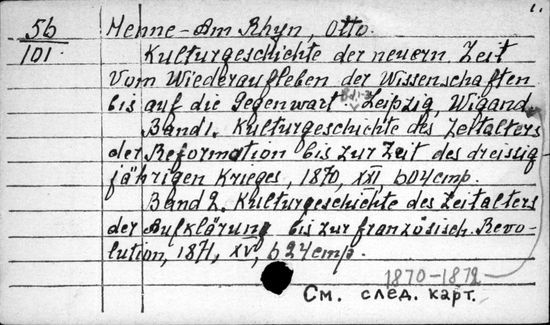 56
101.
Henne-Am Rhyn, Otto.
Kulturgeschichte der neuern Zeit
Vom Wiederaufleben der Wissenschaften
bis auf die Gegenwart. Bd 1- Leipzig, Wigand.
Band 1. Kulturgeschichte des Zeitalters
der Reformation bis zur Zeit des dreissig
jährigen Krieges, 1870, XVI, 604 стр.
Band 2. Kulturgeschichte des Zeitalters
der Aufklärung bis zur französisch. Revo-
lution, 1871, XV, 624 стр.
1870-1872
См. след. карт.